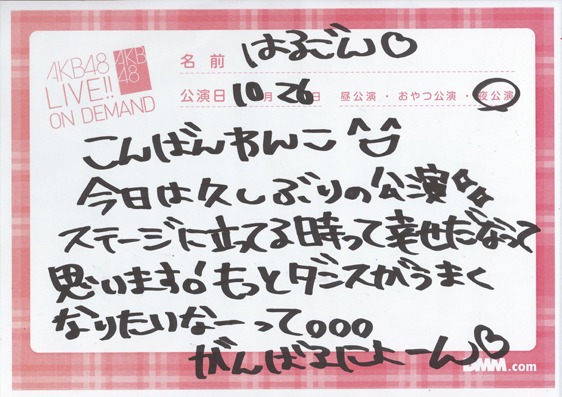 AKB48
LIVE!!
ON DEMAND
AKB
48
名前 はるごん♡
公演日 10月26日 昼公演・おやつ公演・夜公演
こんばんわんこ^^
今日は久しぶりの公演
ステージに立ってる時って幸せだなって
思います!もっとダンスがうまく
なりたいなーって。。。
がんばるにょーん♡
DMM.com